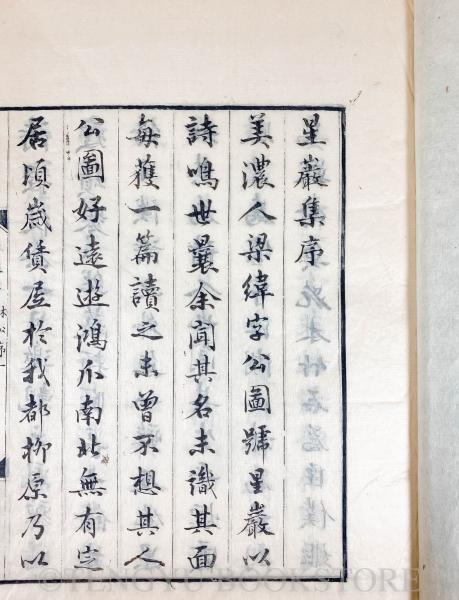 星巖集序
美濃人梁緯字公圖號星巖以
詩鳴世曩余聞其名未識其面
每獲一篇讀之未曾不想其人
公圖好遠遊鴻爪南北無有定
居頃歲賃居於我都柳原乃以
©TENGYU BOOKSTORE